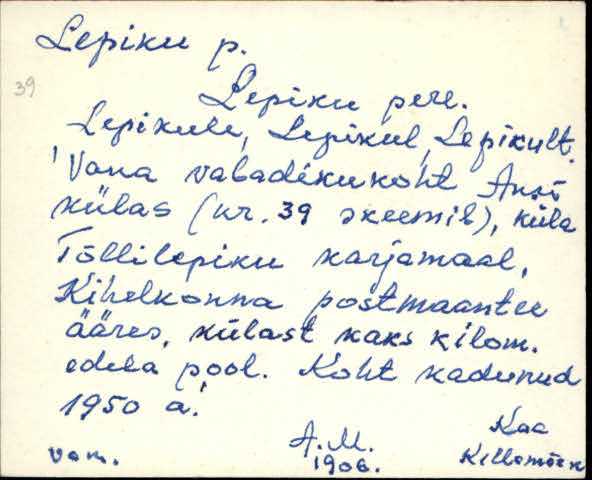 Lepiku p.
39
Lepiku pere.
Lepikule, Lepikul, Lepikult.
Vana vabadikukoht Ansi
külas (nr. 39 skeemil), küla
Tõllilepiku karjamaal,
Kihelkonna postmaantee
ääres, külast kaks kilom.
edela pool. Koht kadunud
1950 a.
Kaa
vam. A.M. Killamäen
1906.